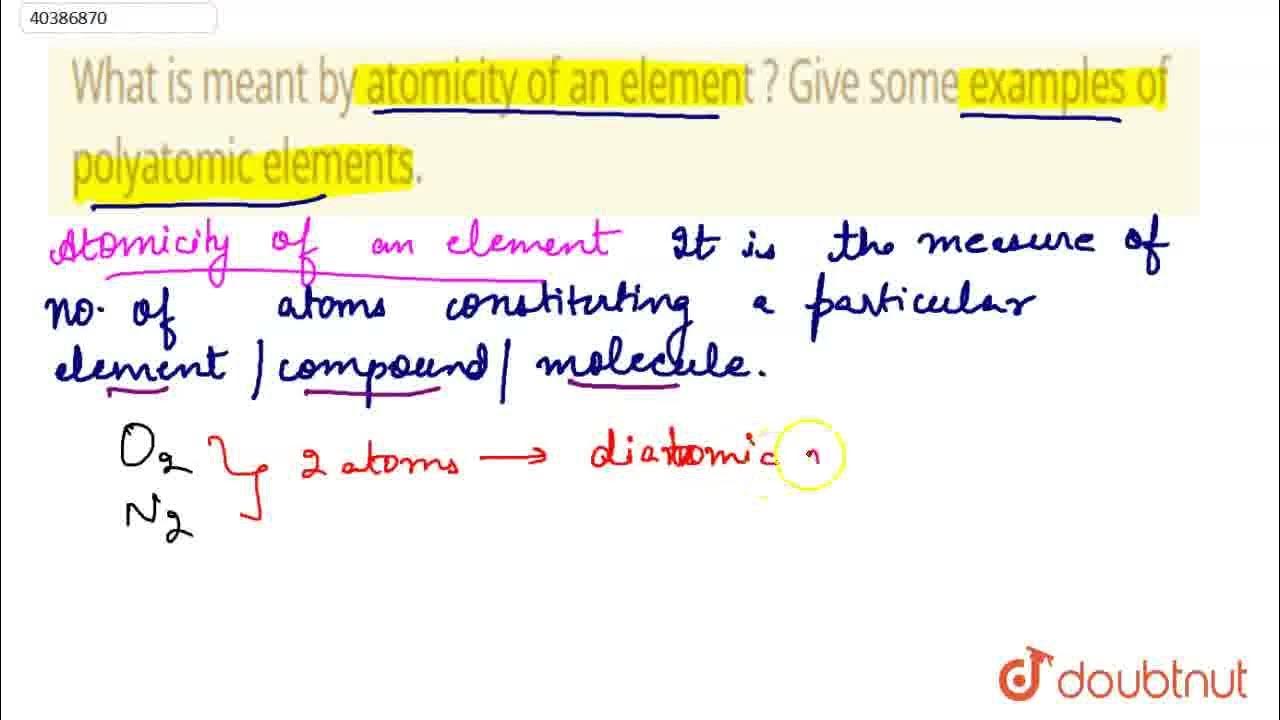 40386870
What is meant by atomicity of an element ? Give some examples of
polyatomic elements.
Atomicity of an element It is the measure of
no. of atoms constituting a particular
element / compound / molecule.
O2
N2
2 atoms → diatomic
doubtnut